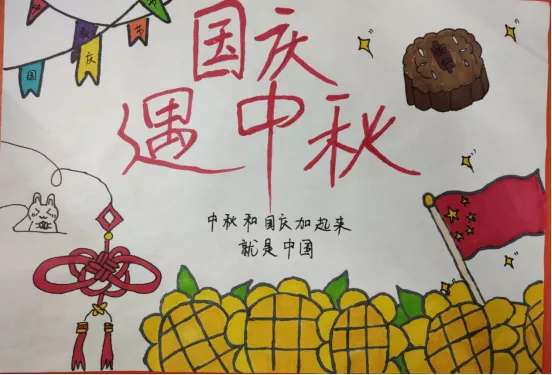 国 庆
国庆
遇中秋
中秋和国庆加起来
就是中国